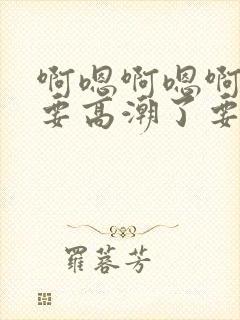 啊嗯啊嗯啊
要高潮了要
羅蓉芳